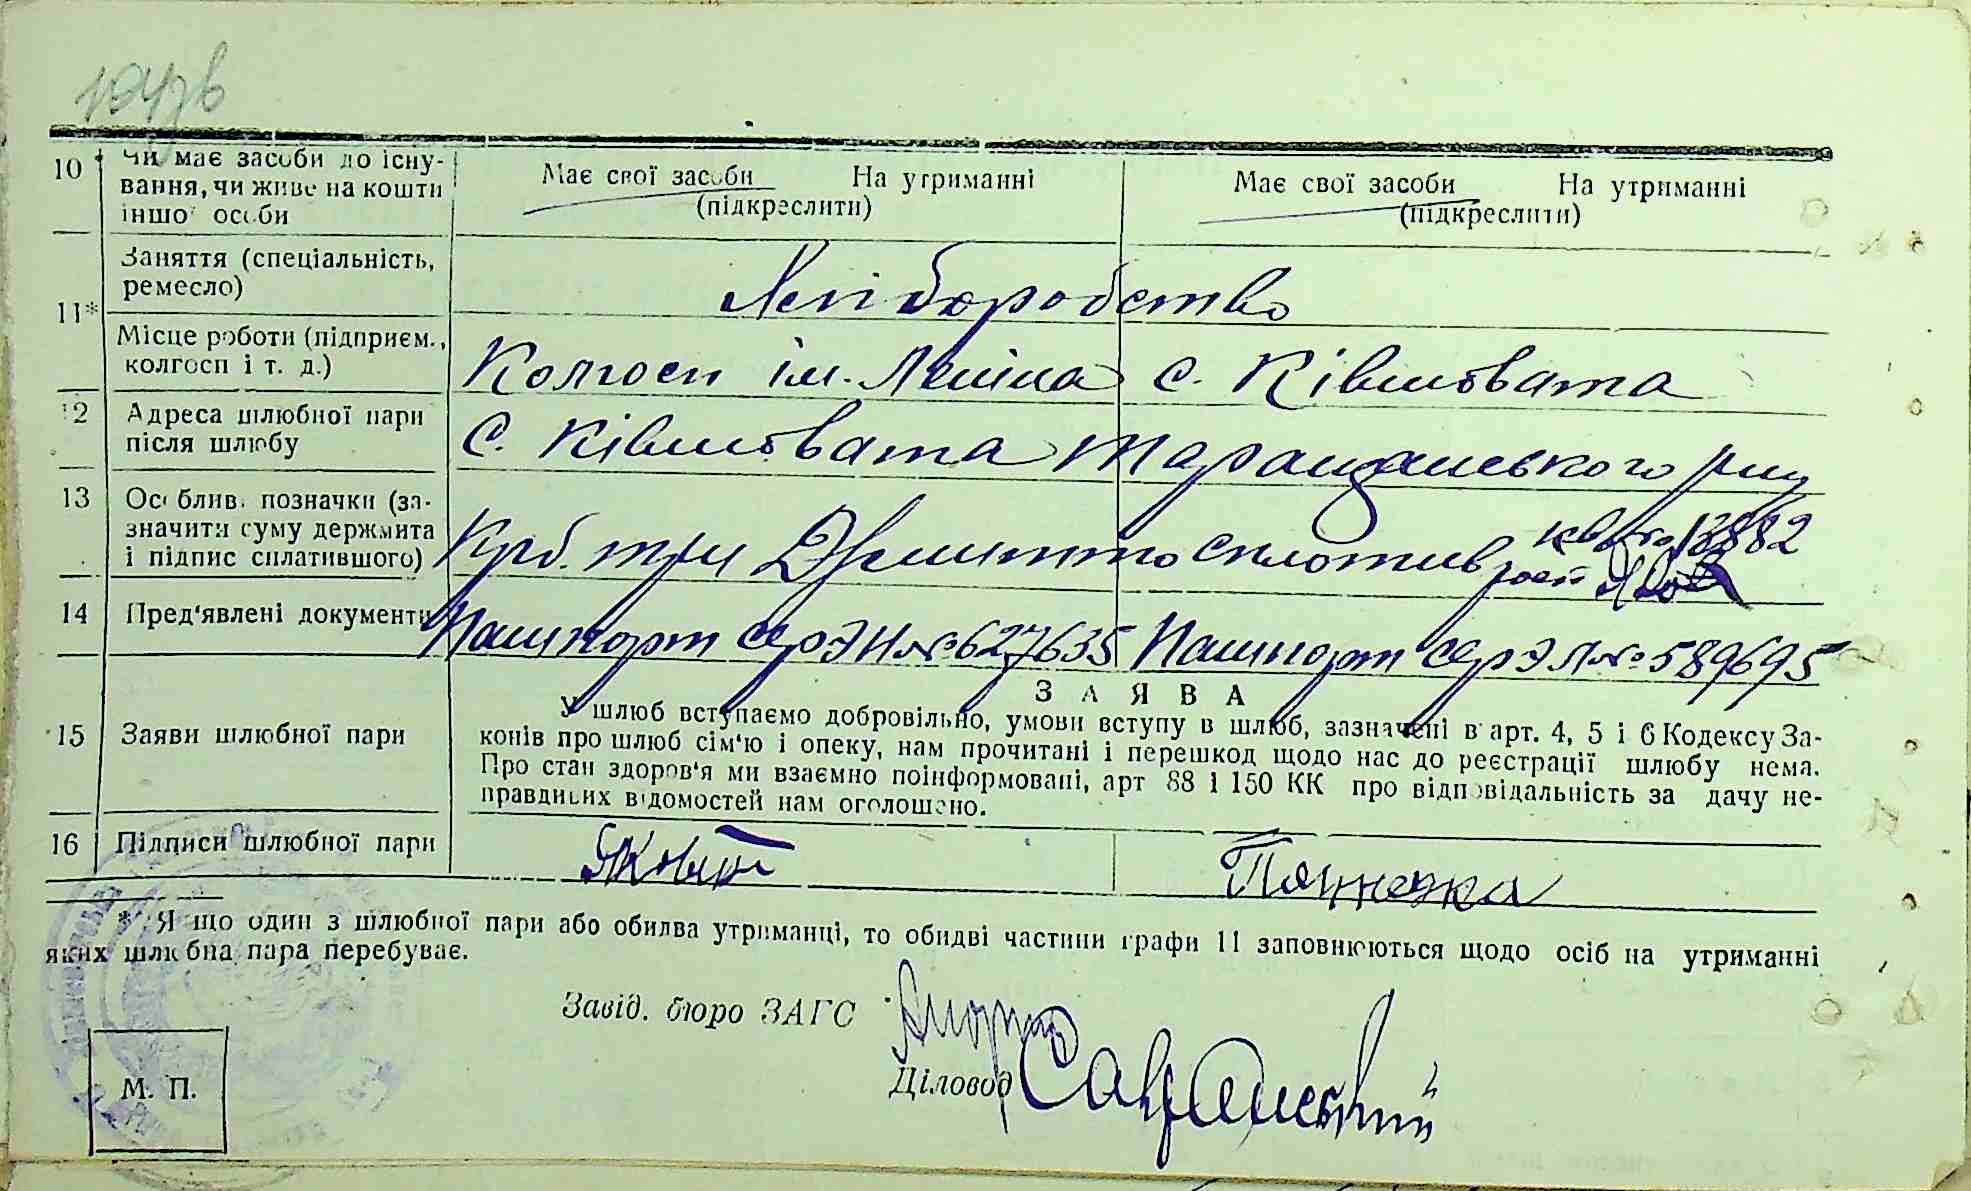 10 Чи має засоби до існу-
вання, чи живе на кошти
іншої особи
Має свої засоби На утриманні
(підкреслити)
Має свої засоби На утриманні
(підкреслити)
11* Заняття (спеціальність,
ремесло)
Хліборобство
Місце роботи (підприєм.,
колгосп і т. д.)
Колгосп ім. Леніна с. Ківшовата
12 Адреса шлюбної пари
після шлюбу
с. Ківшовата Таращанського р-ну
13 Особлив. позначки (за-
значити суму держмита
і підпис сплатившого)
Крб. три Держмито сплотив
кв. № 13882
14 Пред'явлені документи
Пашпорт сер ЭН № 627635 Пашпорт сер ЭЛ № 589695
15 Заяви шлюбної пари
ЗАЯВА
У шлюб вступаємо добровільно, умови вступу в шлюб, зазначені в арт. 4, 5 і 6 Кодексу За-
конів про шлюб сім'ю і опеку, нам прочитані і перешкод щодо нас до реєстрації шлюбу нема.
Про стан здоров'я ми взаємно поінформовані, арт 88 і 150 КК про відповідальність за дачу не-
правдивих відомостей нам оголошено.
16 Підписи шлюбної пари
* Якщо один з шлюбної пари або обидва утриманці, то обидві частини графи 11 заповнюються щодо осіб на утриманні
яких шлюбна пара перебуває.
Завід. бюро ЗАГС
Діловод
М. П.